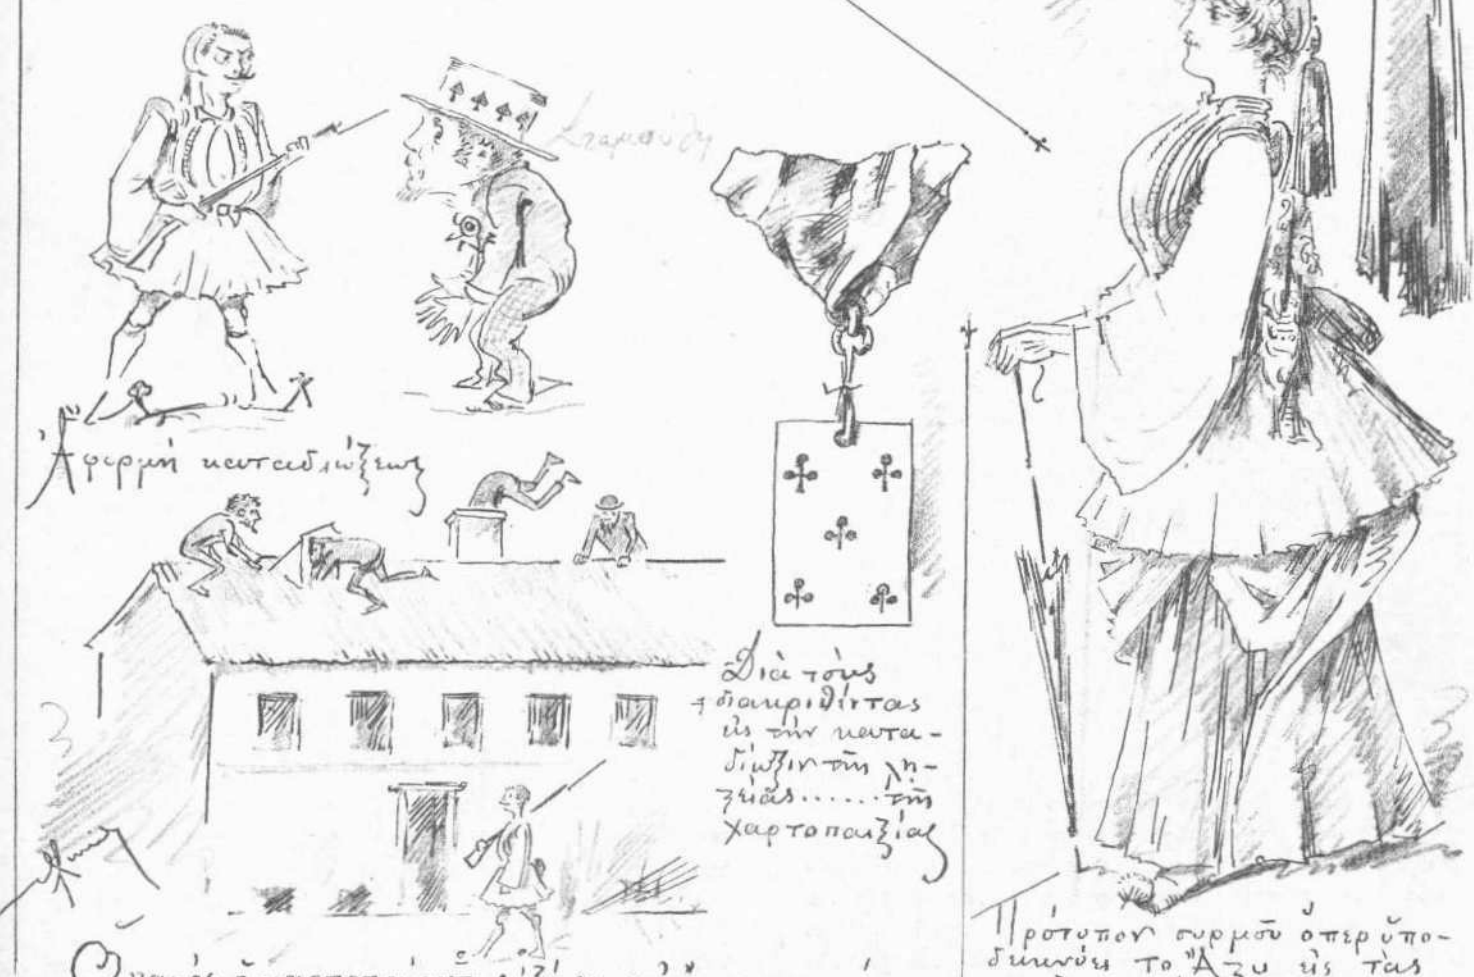 Ἀφορμὴ καταδιώξεως
Διὰ τοὺς
διακριθέντας
εἰς τὴν κατα-
δίωξιν τῆς λῃ-
ξείας...... τῆς
χαρτοπαιξίας
Πρότυπον συρμοῦ ὅπερ ὑπο-
δεικνύει τὸ Ἄστυ εἰς τὰς